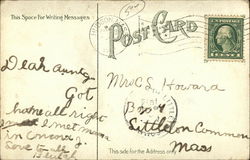 This Space For Writing Messages
POST CARD
Dear Aunty
Got
home all right
met mom
in Concord
Love to all
Mrs C L Howard
Box 4
Littleton Common
Mass
This side for the Address only